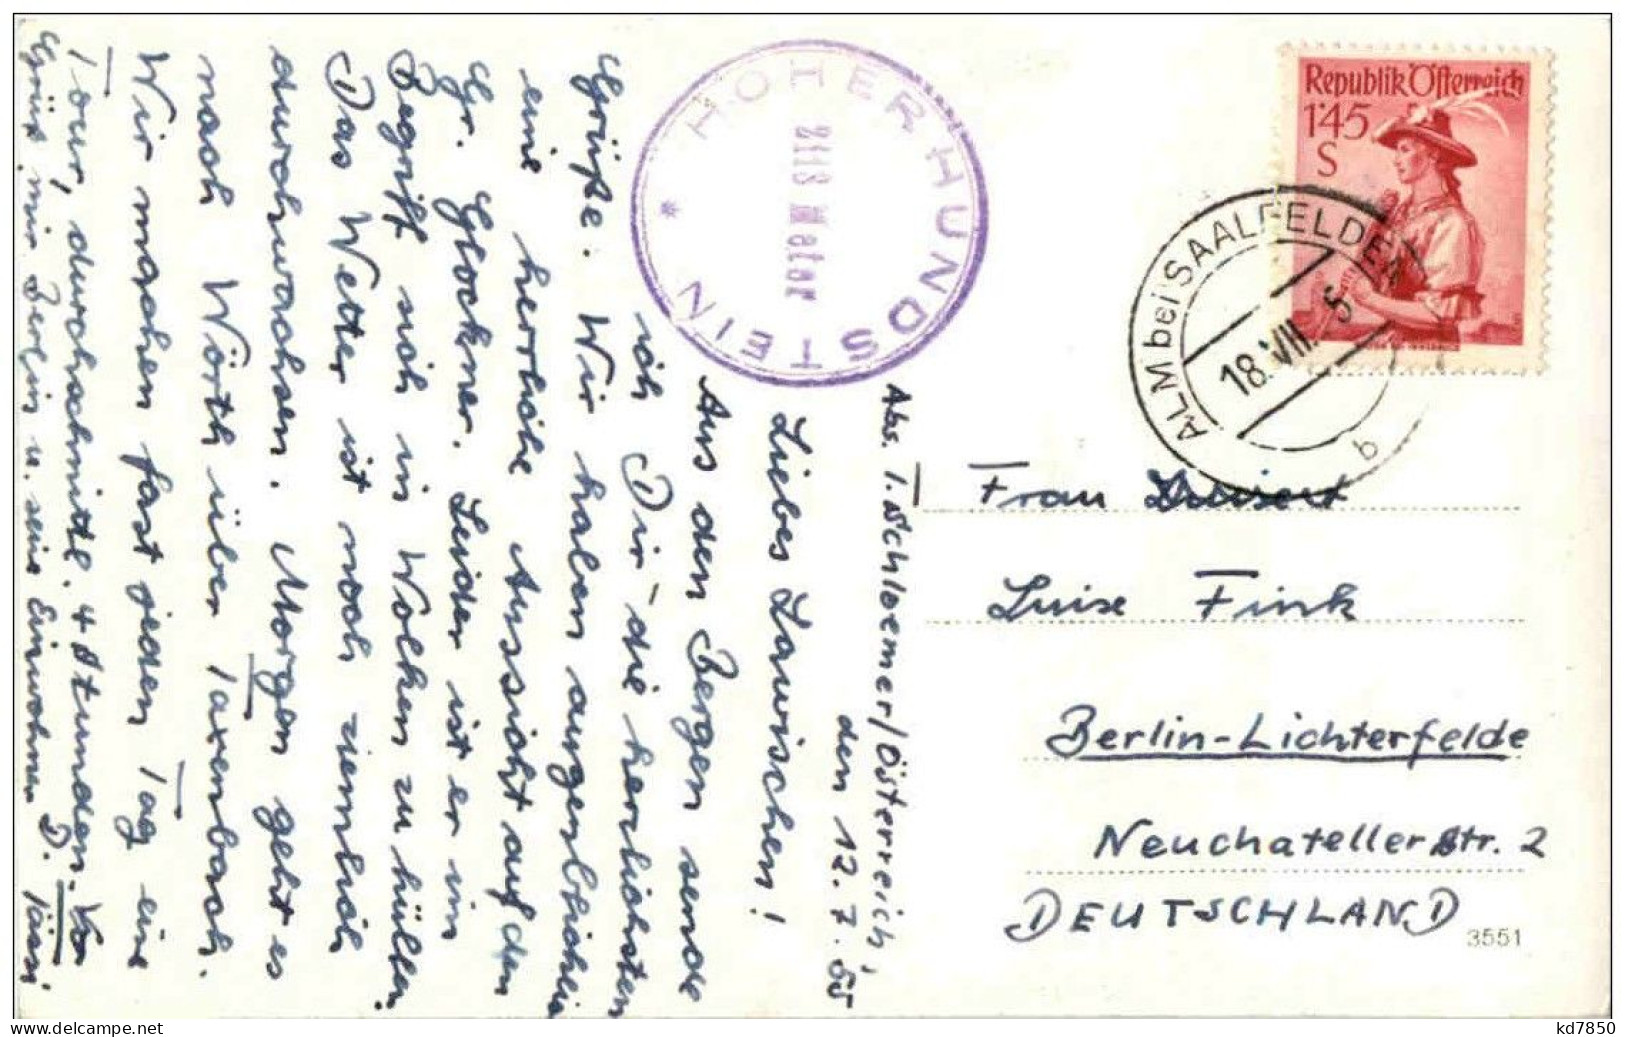 Abs. I. Schloemer/Österreich,
den 12.7.55
Liebes Lawischen!
Aus den Bergen sende
ich Dir die herrlichsten
Grüße. Wir haben augenblicklich
eine herrliche Aussicht auf den
Gr. Glockner. Leider ist er im
Begriff sich in Wolken zu hüllen
Das Wetter ist noch ziemlich
durchwachsen. Morgen geht es
nach Wörth über Taxenbach.
Wir machen fast jeden Tag eine
Tour, durchschnittl. 4 Stunden.
Grüß mir Berlin u. seine Einwohner D.
* HOHER HUNDSTEIN
2118 Meter
Republik Österreich
1'45
S
ALM bei SAALFELDEN
18. VII. 5
b
Frau
Luise Fink
Berlin-Lichterfelde
Neuchateller Str. 2
DEUTSCHLAND
3551
www.delcampe.net
kd7850